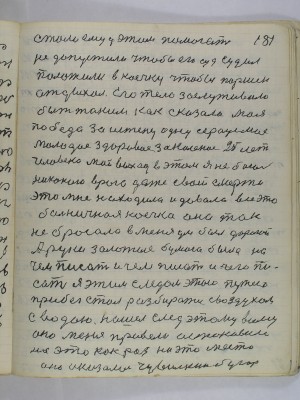 стали ему з этим помогать 181
не допустили чтобы его суд судил
положили в коечку чтобы парень
отдыхал. Его тело заслуживало
быть таким как сказала моя
победа за истину одну
молодое здоровое законное 25 лет
человека мой выход в этом я не боял
никакого врага даже своей смерти
это мне находила и давала вместо
больничная коечка она так
не бросала в меня им был дорогой
А руки заложил бумага была на
чем писать и чем писать и чего пи-
сать я этим следом этого пункта
прибег стал разбирать с воздухом
с водою. нашел след этому всему
оно меня привело остановило
на это как раз на это место
оно оказалось Чувилкин бугор